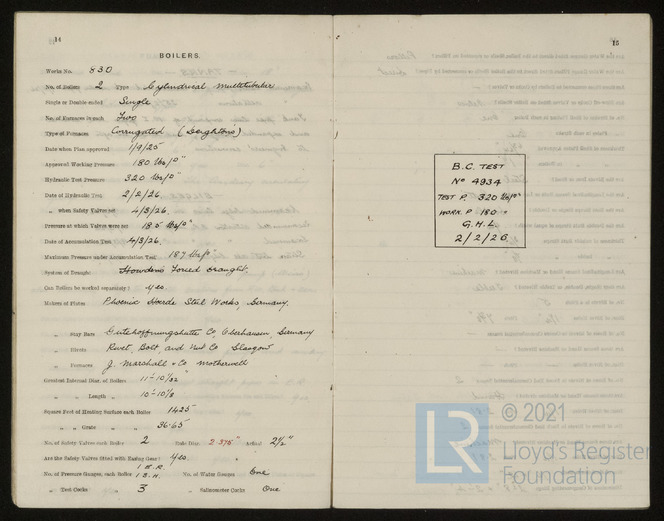 14
BOILERS.
Works No. 830
No. of Boilers 2 Type Cylindrical Multitubular
Single or Double-ended Single
No. of Furnaces in each Two
Type of Furnaces Corrugated (Deighton's)
Date when Plan approved 1/9/25
Approved Working Pressure 180 lbs/□"
Hydraulic Test Pressure 320 lbs/□"
Date of Hydraulic Test 2/2/26
„ when Safety Valves set 4/3/26.
Pressure at which Valves were set 185 lbs/□"
Date of Accumulation Test 4/3/26.
Maximum Pressure under Accumulation Test 187 lbs/□"
System of Draught Howdens Forced draught.
Can Boilers be worked separately? yes.
Makers of Plates Phoenix Hoerde Steel Works, Germany.
„ Stay Bars Gutehoffnungshutte Co, Oberhausen, Germany
„ Rivets Rivet, Bolt, and Nut Co Glasgow
„ Furnaces J. Marshall & Co Motherwell
Greatest Internal Diam. of Boilers 11'-10 1/32"
„ „ Length „ 10'-10 1/8
Square Feet of Heating Surface each Boiler 1425
„ „ Grate „ „ 36.65
No. of Safety Valves each Boiler 2 Rule Diam. 2.375" Actual 2½"
Are the Safety Valves fitted with Easing Gear? yes.
No. of Pressure Gauges, each Boiler 1 E.R. 1 S.H. No. of Water Gauges One
„ Test Cocks „ 3 „ Salinometer Cocks One
15
B.C. TEST
No 4934
TEST P. 320 lbs/□"
WORK. P 180 "
G.H.L
2/2/26
© 2021
LR
Lloyd's Register
Foundation